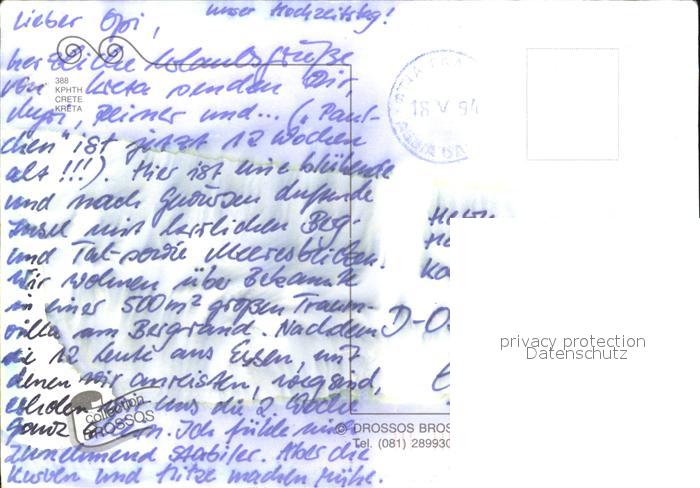 unser Hochzeitstag!
Lieber Opi,
herzliche Urlaubsgrüße
von Kreta senden Dir
Reiner und... ("Paul-
chen" ist jetzt 12 Wochen
alt!!!). Hier ist eine blühende
und nach Gewürzen duftende
Insel mit herrlichen Berg-
und Tal- sowie Meeresblicken.
Wir wohnen über Bekannte
in einer 500m² großen Traum-
villa am Bergrand. Nachdem
die 12 Leute aus Essen, mit
denen wir anreisten,
wir uns die 2. Woche
ganz. Ich fühle mich
zunehmend stabiler. Aber die
Kurven und Hitze machen Mühe.
388
ΚΡΗΤΗ
CRETE
KRETA
18 V 94
D-
collection
DROSSOS
© DROSSOS BROS
Tel. (081) 289930
privacy protection
Datenschutz